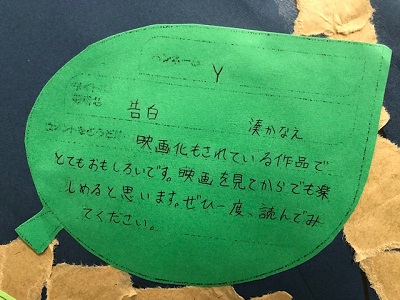 ペンネーム
Y
タイトル
告白 湊かなえ
コメントをどうぞ!!
映画化もされている作品で
とてもおもしろいです。映画を見てからでも楽
しめると思います。ぜひ一度、読んでみ
てください。